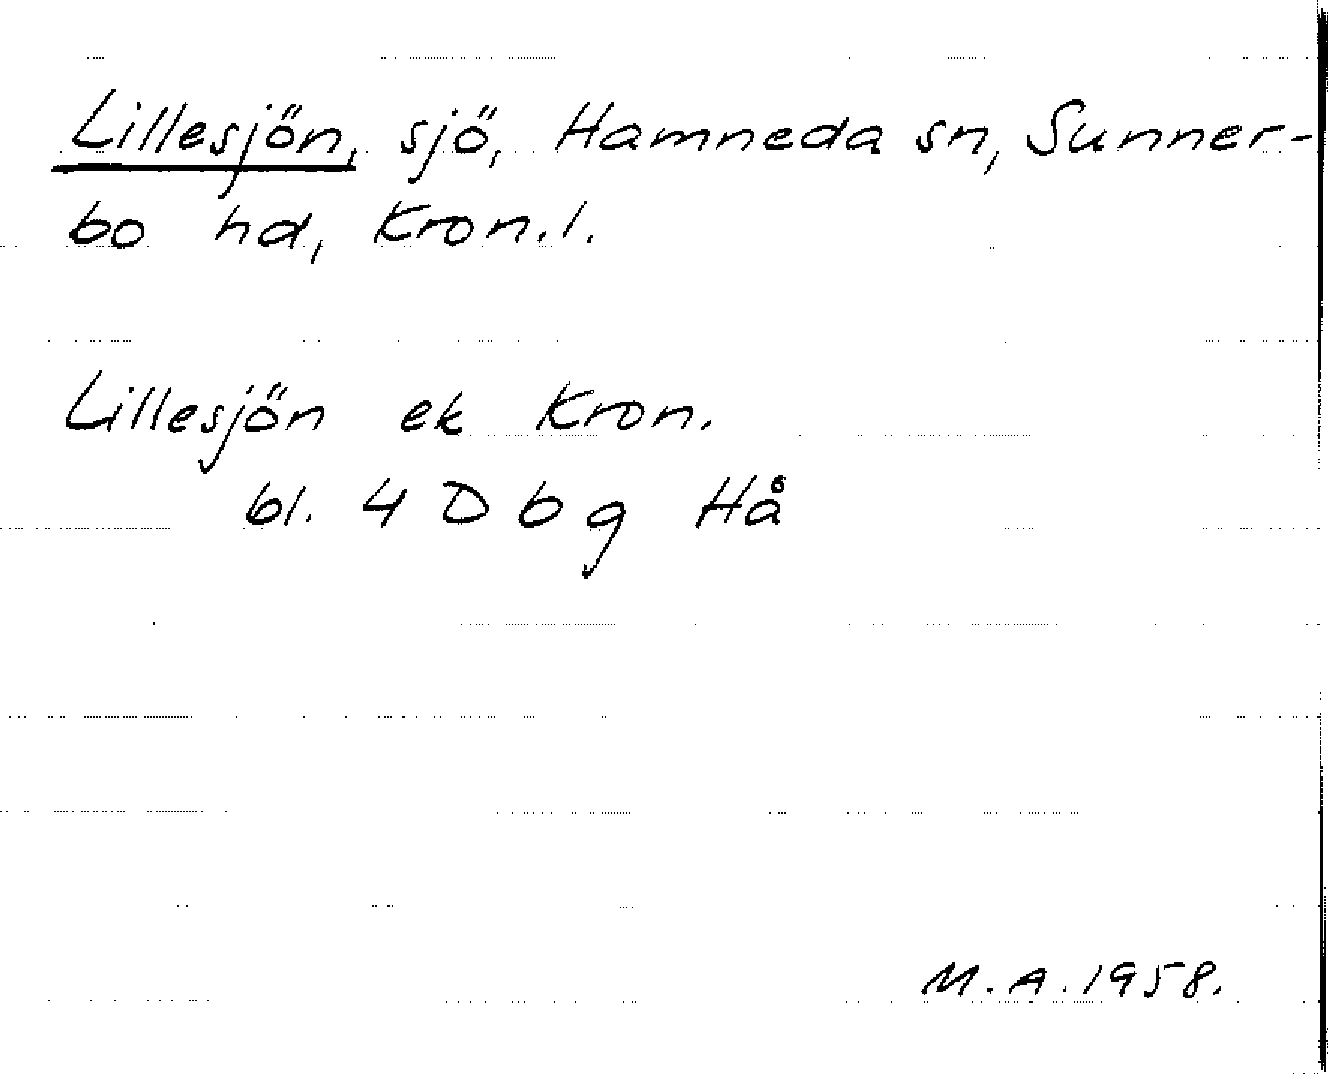 Lillesjön, sjö, Hamneda sn, Sunner-
bo hd, Kron.l.
Lillesjön ek Kron.
bl. 4 D b g Hå
M.A. 1958.